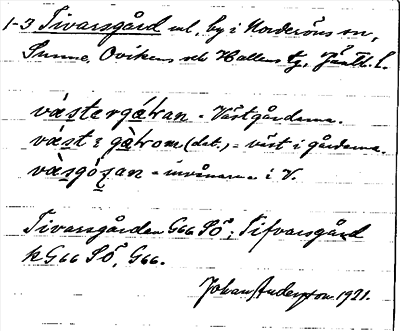 1-3 Tivarsgård ul. by i Norderöns sn,
Sunne, Ovikens och Hallens tg. Jämtl. l.
västergátran - Västgårdarna.
väst i gàtrom (dat.) = väst i gårdarna.
vàsgósan - invånarna i V.
Tivarsgården G66 SÖ; Tifvarsgård
kG66 SÖ, G66.
Johan Anderson 1921.